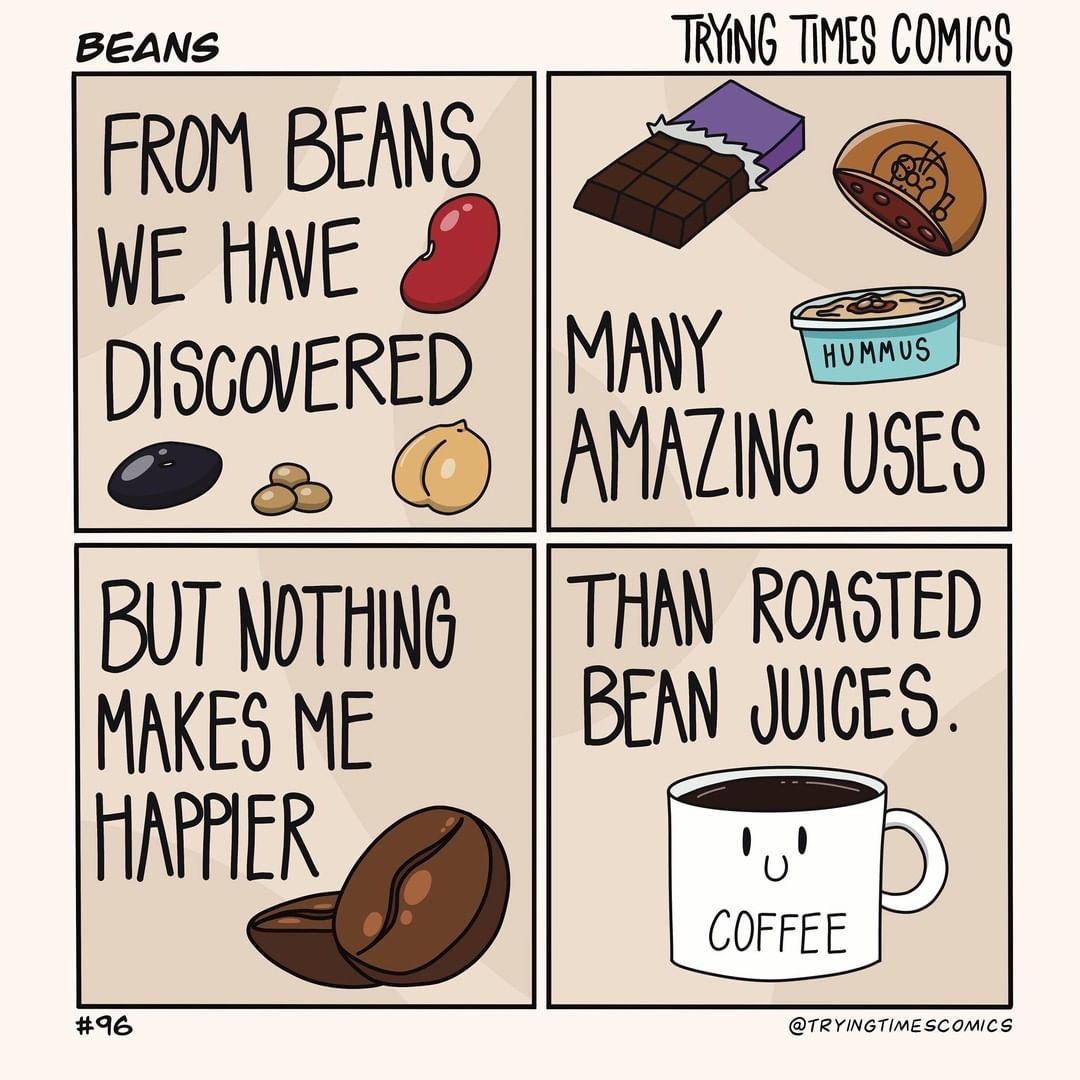 BEANS
TRYING TIMES COMICS
FROM BEANS
WE HAVE
DISCOVERED
MANY
HUMMUS
AMAZING USES
BUT NOTHING
MAKES ME
HAPPIER
THAN ROASTED
BEAN JUICES.
COFFEE
#96
@TRYINGTIMESCOMICS